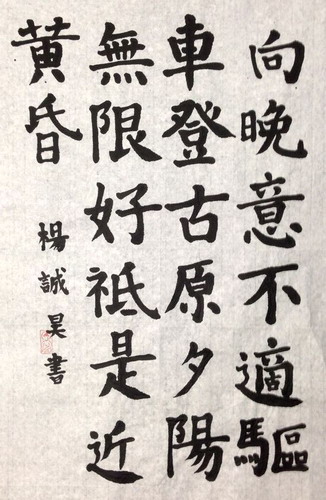 向晚意不適驅
車登古原夕陽
無限好祗是近
黃昏
楊誠昊書